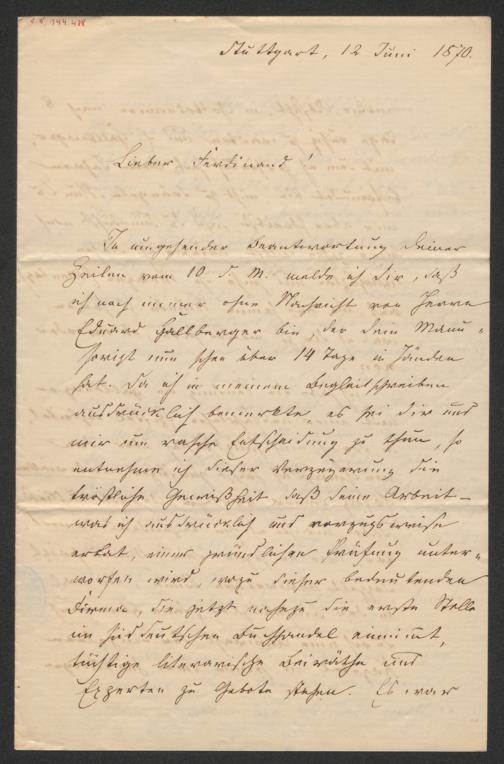 Stuttgart, 12 Juni 1870.
Lieber Ferdinand!
In umgehender Beantwortung Deiner
Zeilen vom 10 d. M. melde ich Dir, daß
ich noch immer ohne Nachricht von Herrn
Eduard Hallberger bin, der dein Manu-
script nun schon über 14 Tage in Händen
hat. Da ich in meinem Begleitschreiben
ausdrücklich bemerkte, es sei dir und
mir um rasche Entscheidung zu thun, so
entnehme ich dieser Verzögerung die
tröstliche Gewißheit, daß deine Arbeit –
was ich ausdrücklich und vorzugsweise
erbat, einer gründlichen Prüfung unter-
worfen wird, wozu dieser bedeutenden
Firma, die jetzt nahezu die erste Stelle
im süddeutschen Buchhandel einnimmt,
tüchtige literarische Beiräthe und
Experten zu Gebote stehen. Es war